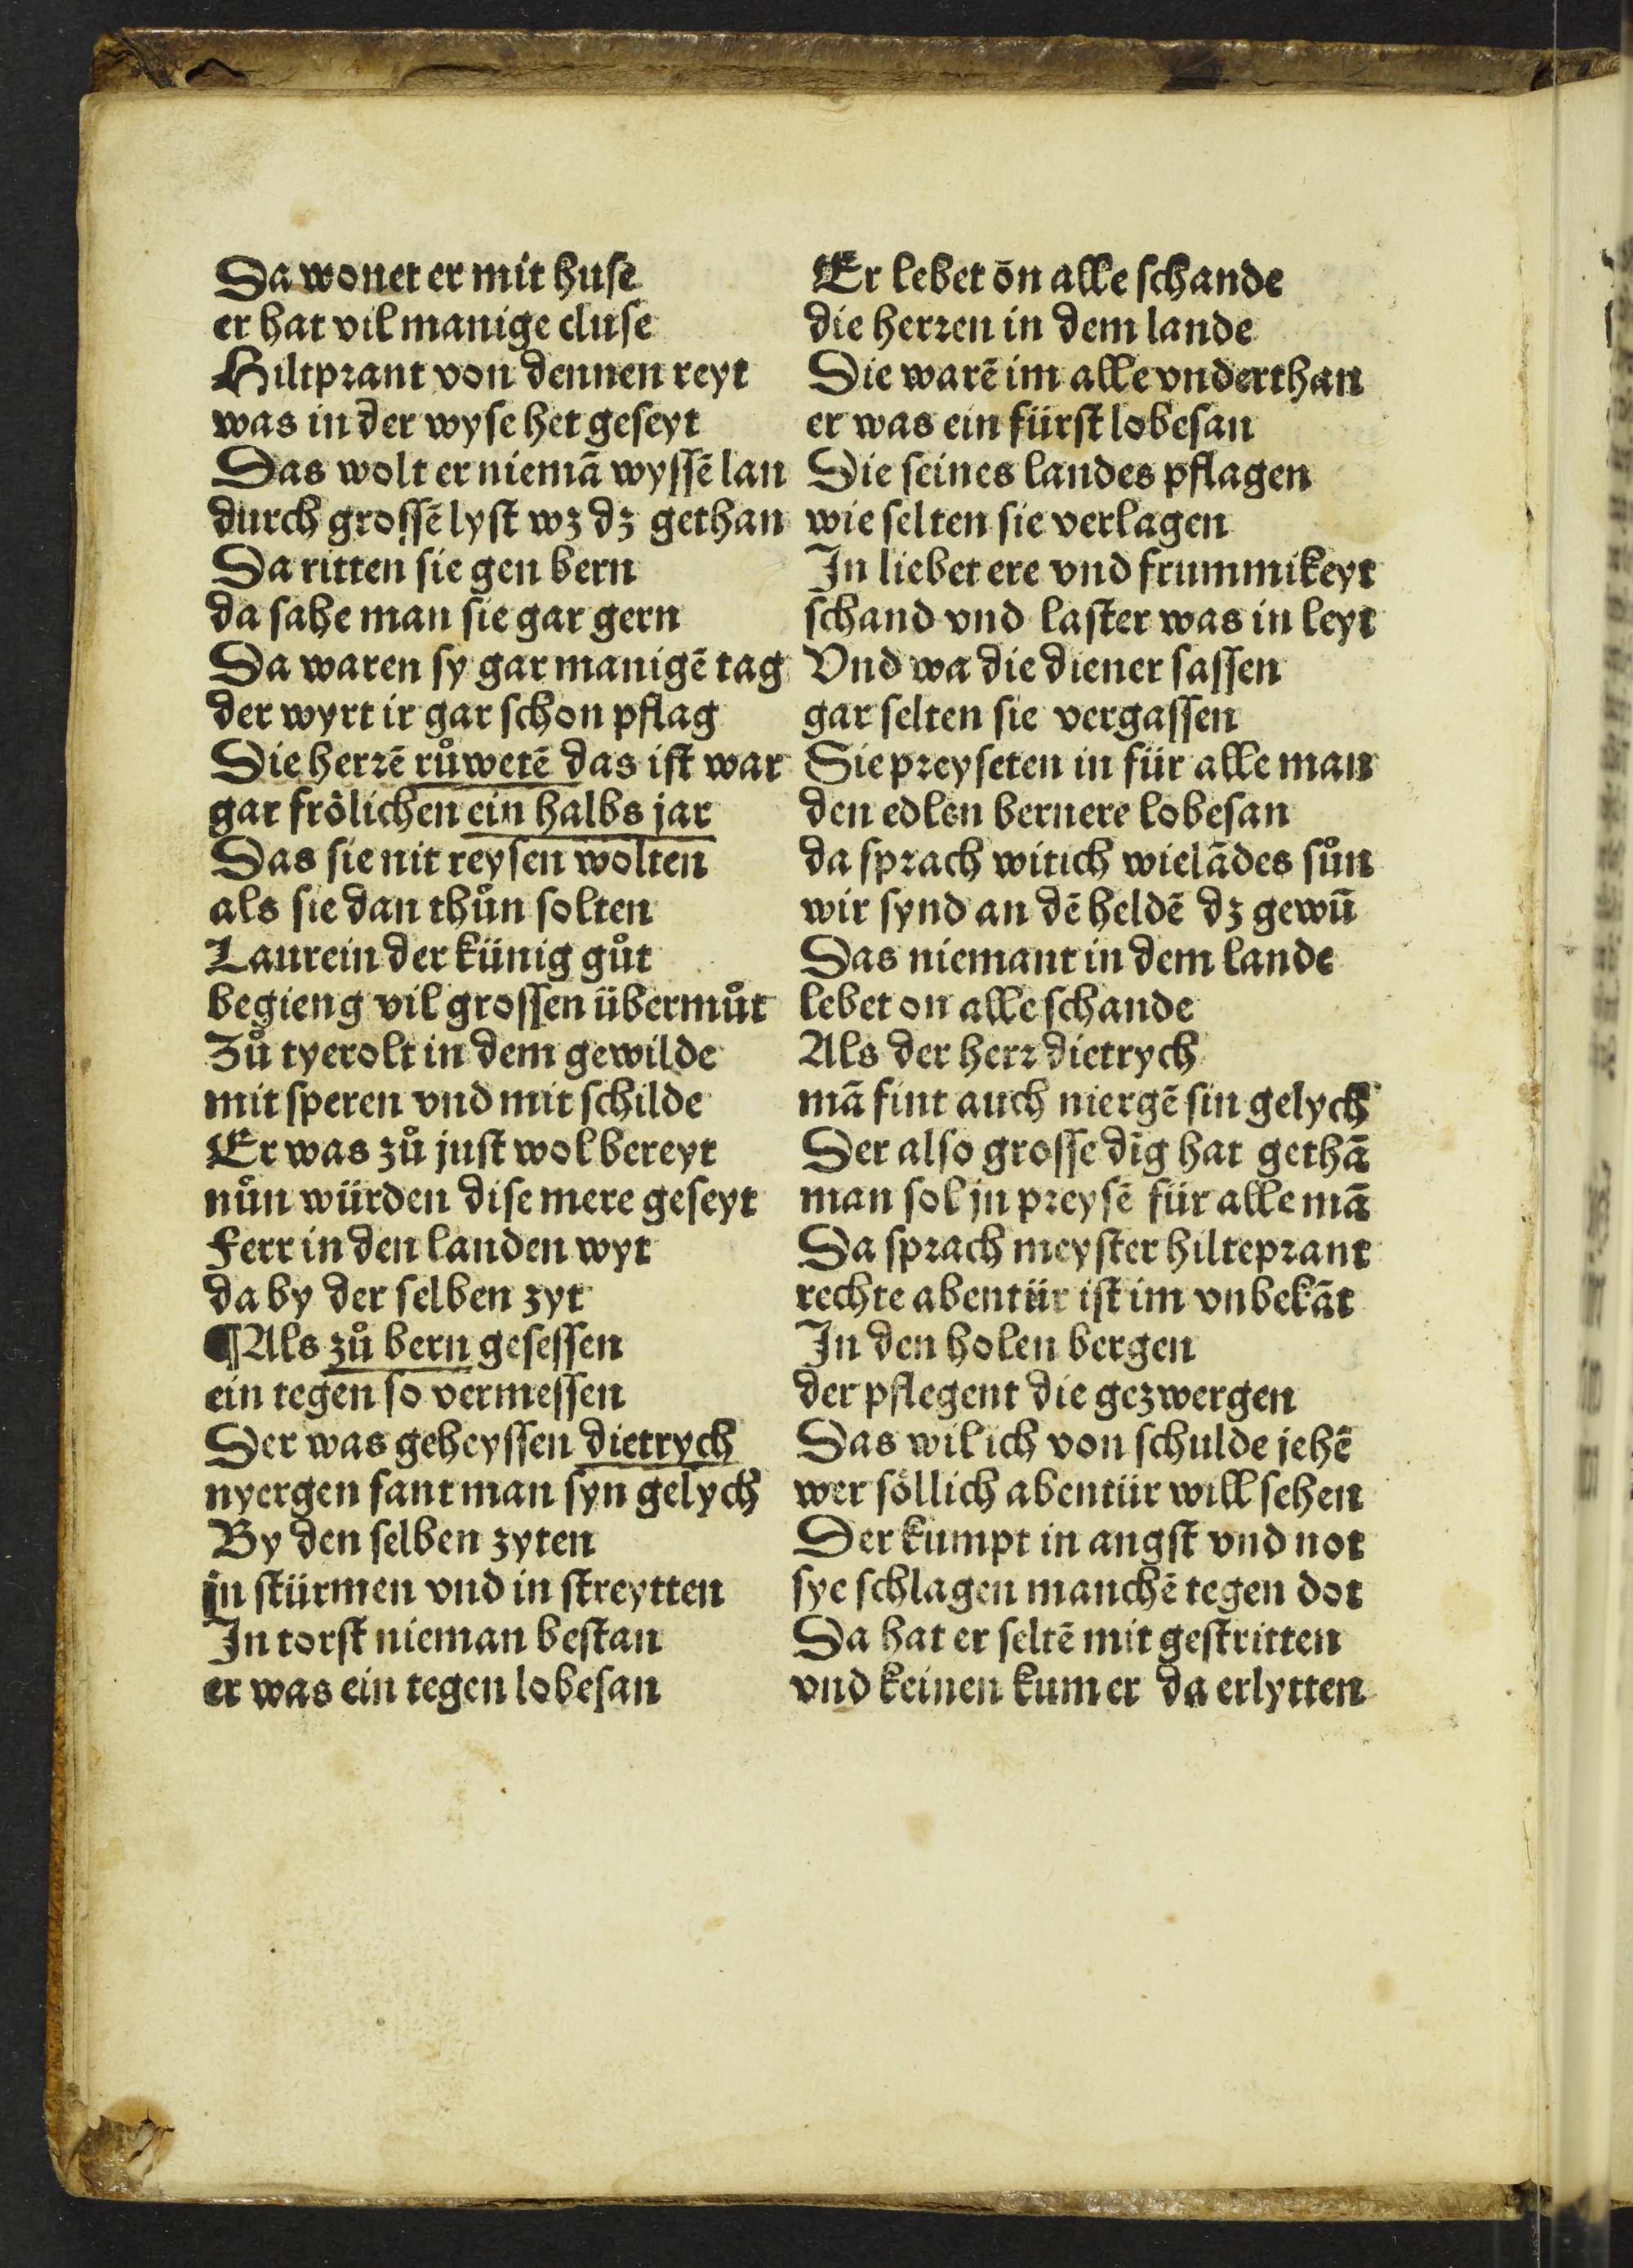 Da wonet er mit huſe
er hat vil manige cluſe
Hiltprant von dennen reyt
was in der wyſe het geſeyt
Das wolt er niemā wyſſē lan
durch groſſē lyſt wꝫ dꝫ gethan
Da ritten ſie gen bern
da ſahe man ſie gar gern
Da waren ſy gar manigē tag
der wyrt ir gar ſchon pflag
Die herꝛē růwetē das iſt war
gar frölichen ein halbs jar
Das ſie nit reyſen wolten
als ſie dan thůn ſolten
Laurein der künig gůt
begieng vil groſſen übermůt
Zů tyerolt in dem gewilde
mit ſperen vnd mit ſchilde
Er was zů juſt wol bereyt
nůn würden diſe mere geſeyt
Ferr in den landen wyt
da by der ſelben zyt
¶Als zů bern geſeſſen
ein tegen ſo vermeſſen
Der was geheyſſen dietrych
nyergen fant man ſyn gelych
By den ſelben zyten
jn ſtürmen vnd in ſtreytten
In torſt nieman beſtan
er was ein tegen lobeſan
Er lebet ōn alle ſchande
die herꝛen in dem lande
Die warē im alle vnderthan
er was ein fürſt lobeſan
Die ſeines landes pflagen
wie ſelten ſie verlagen
In liebet ere vnd frummikeyt
ſchand vnd laſter was in leyt
Vnd wa die diener ſaſſen
gar ſelten ſie vergaſſen
Sie preyſeten in für alle man
den edlen bernere lobeſan
da ſprach witich wielādes ſůn
wir ſynd an dē heldē dꝫ gewū
Das niemant in dem lande
lebet on alle ſchande
Als der herꝛ dietrych
mā fint auch niergē ſin gelych
Der alſo groſſe dīg hat gethā
man ſol jn preyſē für alle mā
Da ſprach meyſter hilteprant
rechte abentür iſt im vnbekāt
In den holen bergen
der pflegent die gezwergen
Das wil ich von ſchulde jehē
wer ſöllich abentür will ſehen
Der kumpt in angſt vnd not
ſye ſchlagen manchē tegen dot
Da hat er ſeltē mit geſtritten
vnd keinen kumer da erlytten